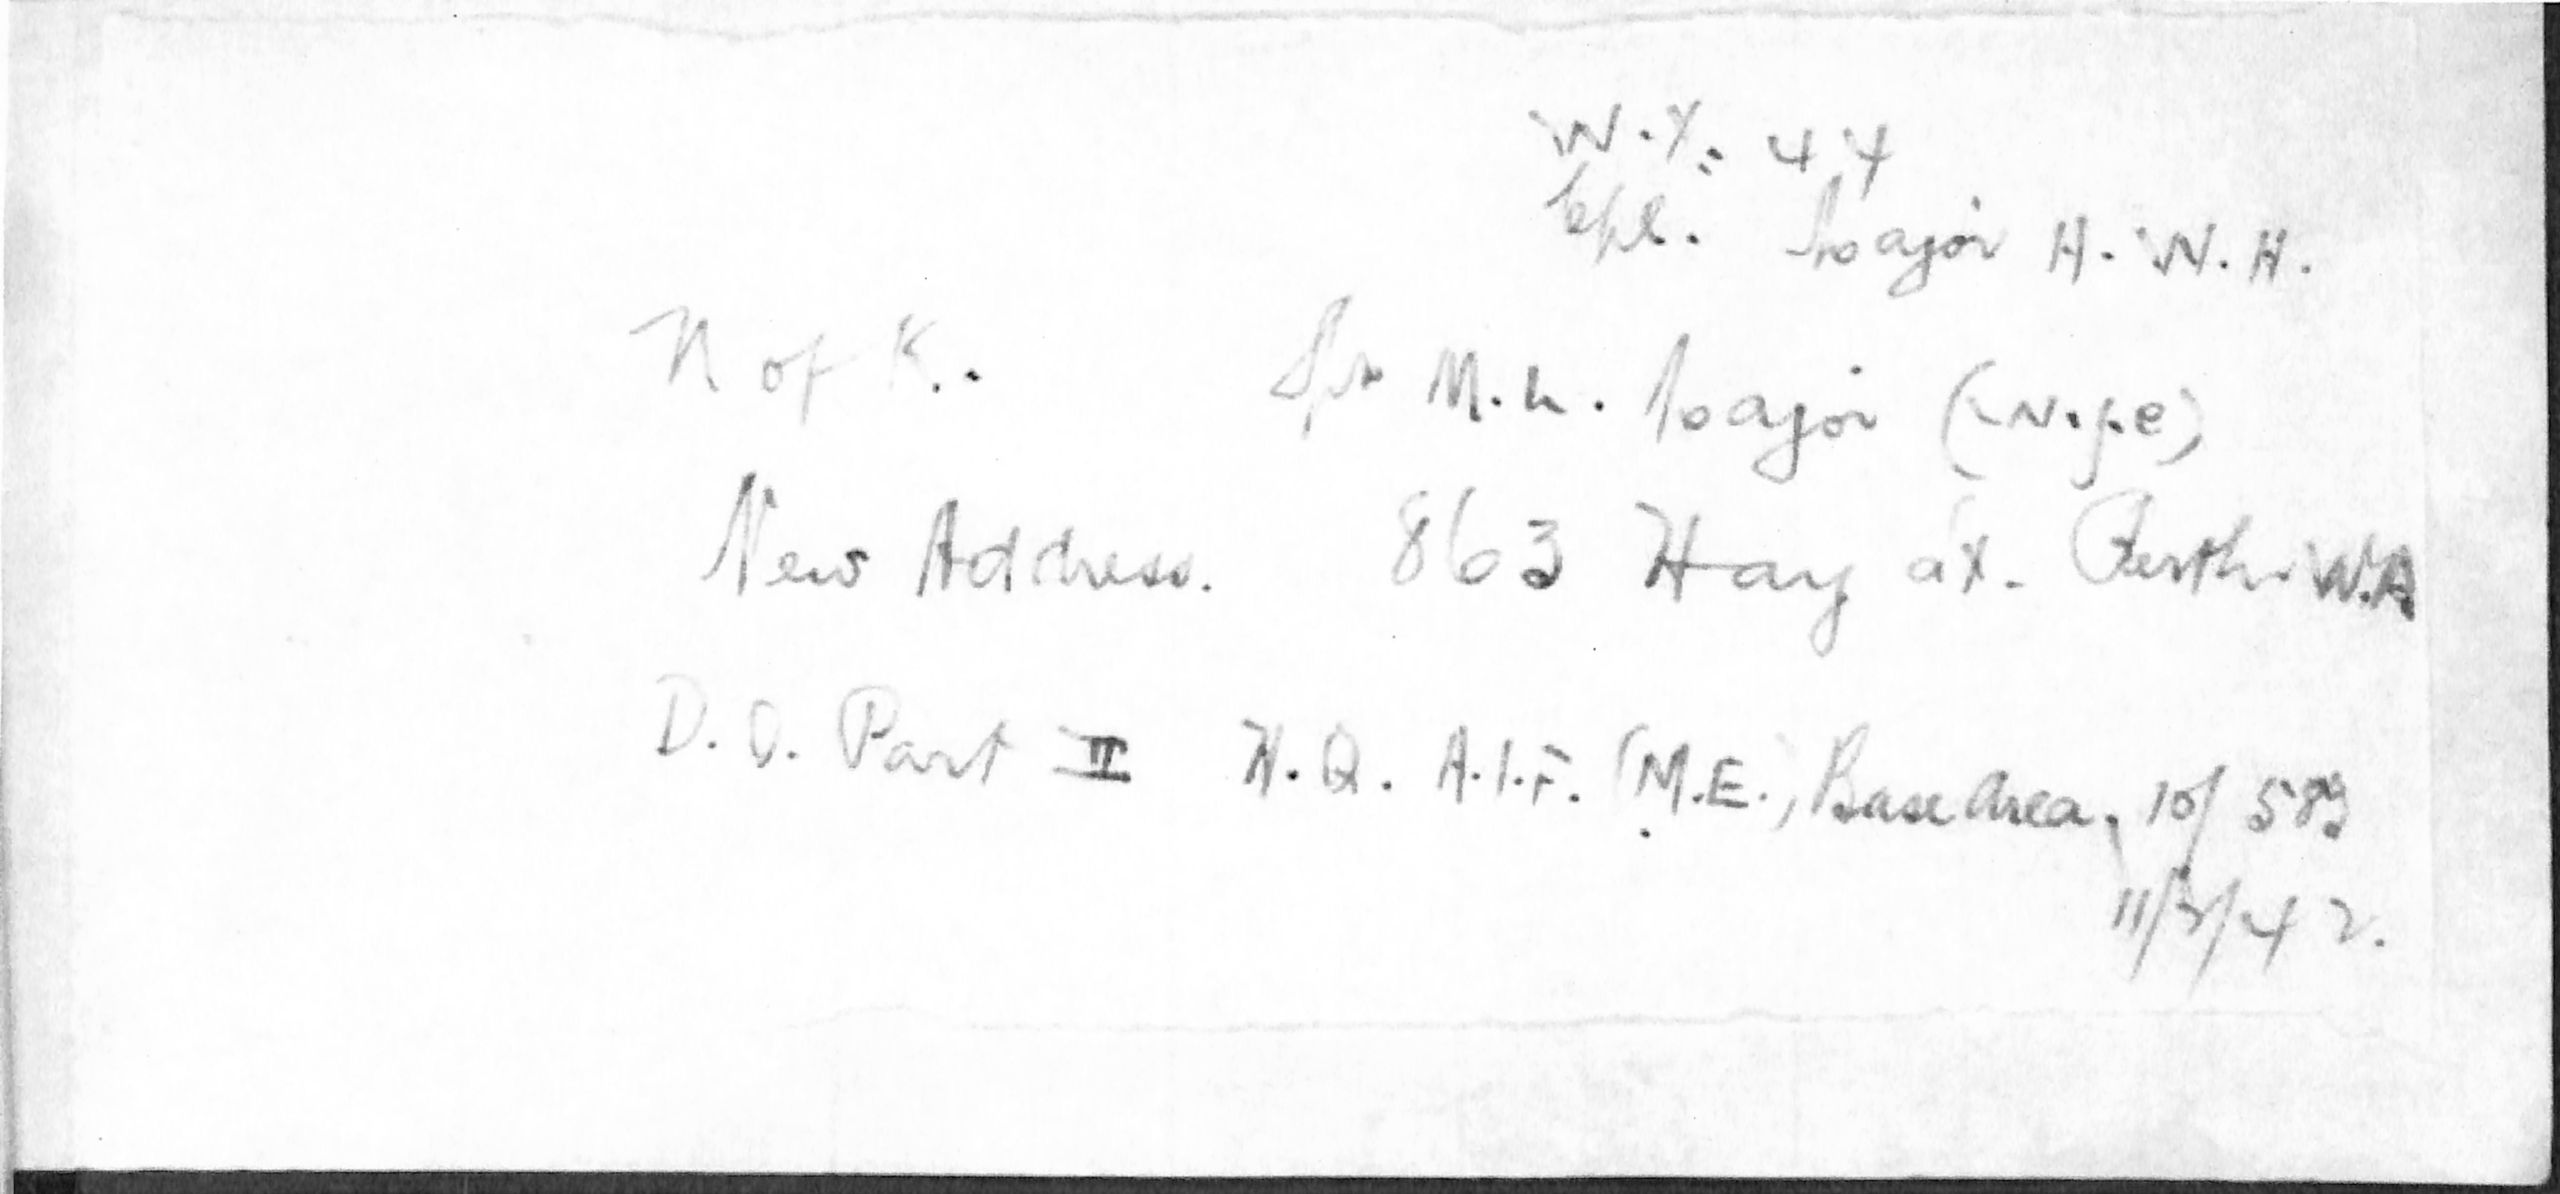 W.X. 44
Cpl. Major H. W. H.
N of K. . M. L. Major (Wife)
New Address. 863 Hay St. Perth W.A
D.O. Part II H.Q. A.I.F. (M.E.) Base Area, 10/ 583
11/3/42.